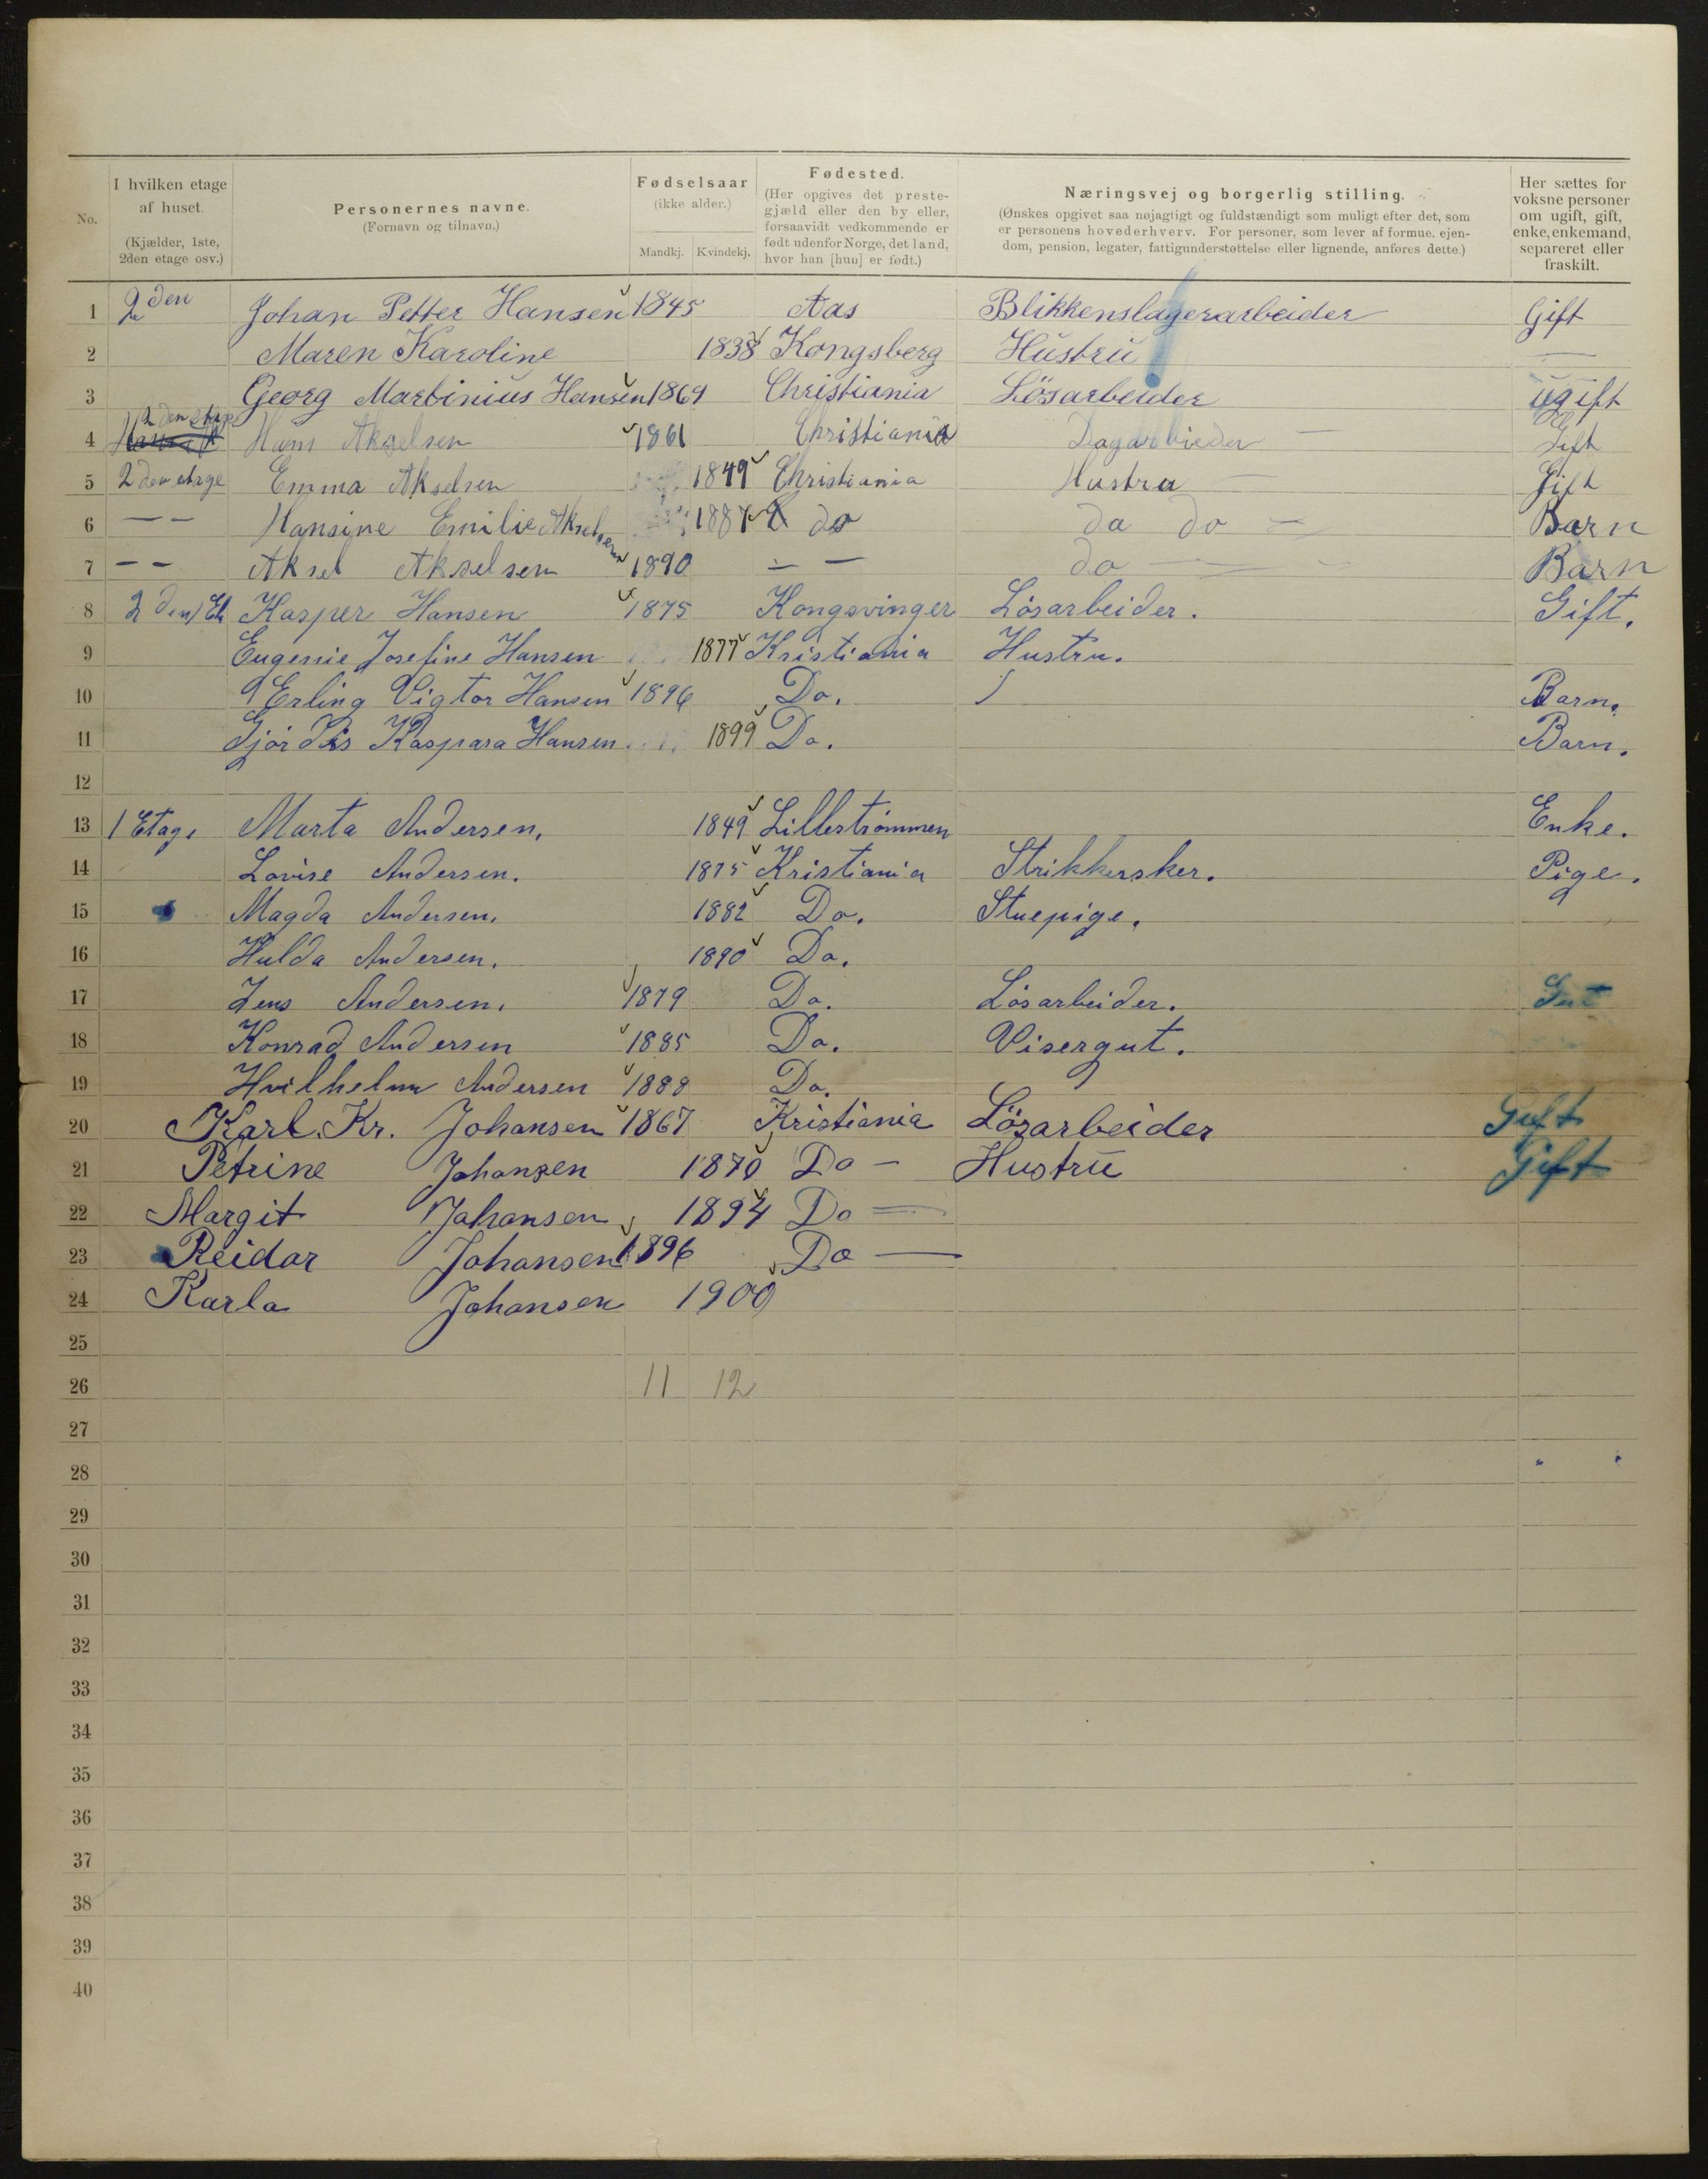 No. | I hvilken etage af huset. (Kjælder, 1ste, 2den etage osv.) | Personernes navne. (Fornavn og tilnavn.) | Fødselsaar (ikke alder.) Mandkj. Kvindekj. | Fødested. (Her opgives det prestegjæld eller den by eller, forsaavidt vedkommende er født udenfor Norge, det land, hvor han [hun] er født.) | Næringsvej og borgerlig stilling. (Ønskes opgivet saa nøjagtigt og fuldstændigt som muligt efter det, som er personens hovederhverv. For personer, som lever af formue, ejendom, pension, legater, fattigunderstøttelse eller lignende, anføres dette.) | Her sættes for voksne personer om ugift, gift, enke, enkemand, separeret eller fraskilt.
1 2den Johan Petter Hansen 1845 Aas Blikkenslagerarbeider Gift
2 Maren Karoline 1838 Kongsberg Hustru —
3 Georg Martinius Hansen 1869 Christiania Lösarbeider ugift
4 2den etage Hans Akselsen 1861 Christiania Dagarbieder — Gift
5 2den etage Emma Akselsen 1849 Christiania Hustru — Gift
6 — — Hansine Emilie Akselsen 1887 do do do — Barn
7 — — Aksel Akselsen 1890 — — do — Barn
8 2den Et Kasper Hansen 1875 Kongsvinger Lösarbeider. Gift.
9 Eugenie Josefine Hansen 1877 Kristiania Hustru.
10 Erling Vigtor Hansen 1896 Do. Barn.
11 Gjördis Kaspara Hansen 1899 Do. Barn.
12
13 1 Etage Marta Andersen. 1849 Lilleströmmen Enke.
14 Lovise Andersen. 1875 Kristiania Strikkersker. Pige.
15 Magda Andersen. 1882 Do. Stuepige.
16 Hulda Andersen. 1890 Do.
17 Jens Andersen. 1879 Do. Lösarbeider. Gut
18 Konrad Andersen 1885 Do. Visergut.
19 Hvilhelm Andersen 1888 Do.
20 Karl. Kr. Johansen 1867 Kristiania Lösarbeider Gift
21 Petrine Johansen 1870 Do — Hustru Gift
22 Margit Johansen 1894 Do —
23 Reidar Johansen 1896 Do —
24 Karla Johansen 1900
25
26 11 12
27
28
29
30
31
32
33
34
35
36
37
38
39
40